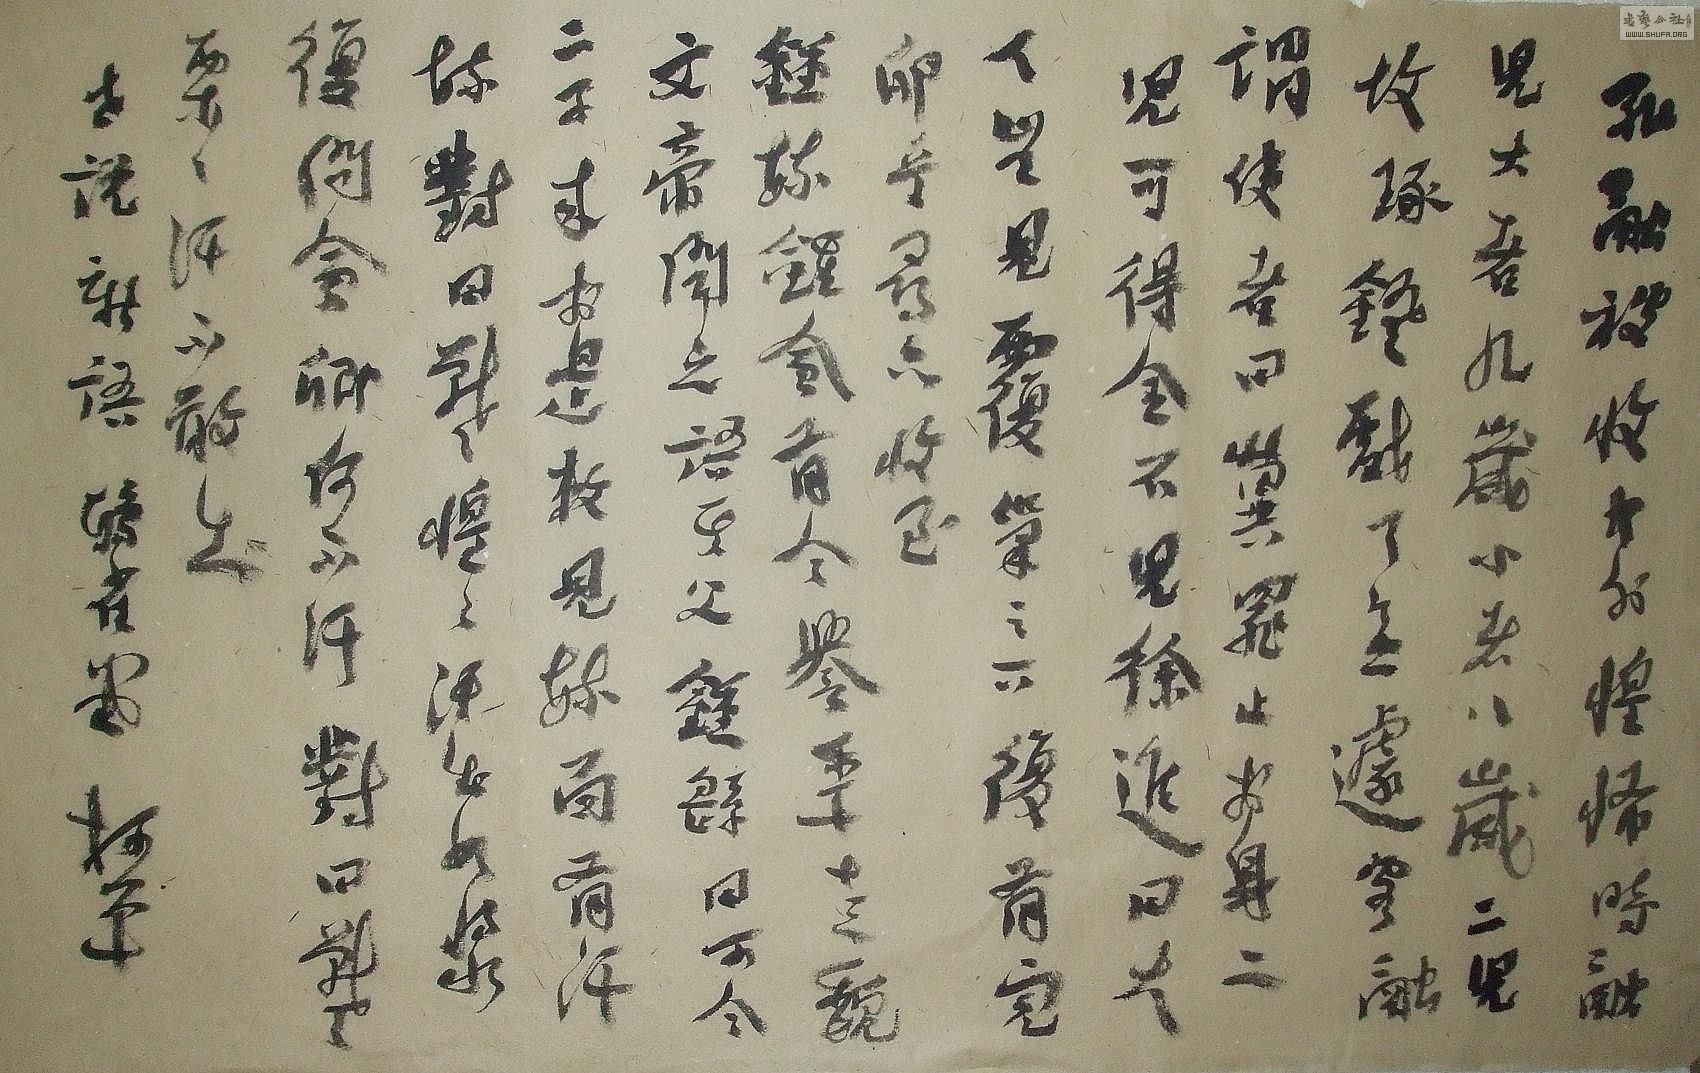 孔融被收中外惶怖時融
兒大者九歲小者八歲二兒
故琢釘戲了無遽容融
謂使者曰冀罪止於身二
兒可得全不兒徐進曰大
人豈見覆巢之下復有完
卵乎尋亦收至
鍾毓鍾會少有令譽年十三魏
文帝聞之語其父鍾繇曰可令
二子來於是敕見毓面有汗
毓對曰戰戰惶惶汗出如漿
復問會卿何以不汗對曰戰戰
栗栗汗不敢出
古說新語
書藝公社
WWW.SHUFA.ORG